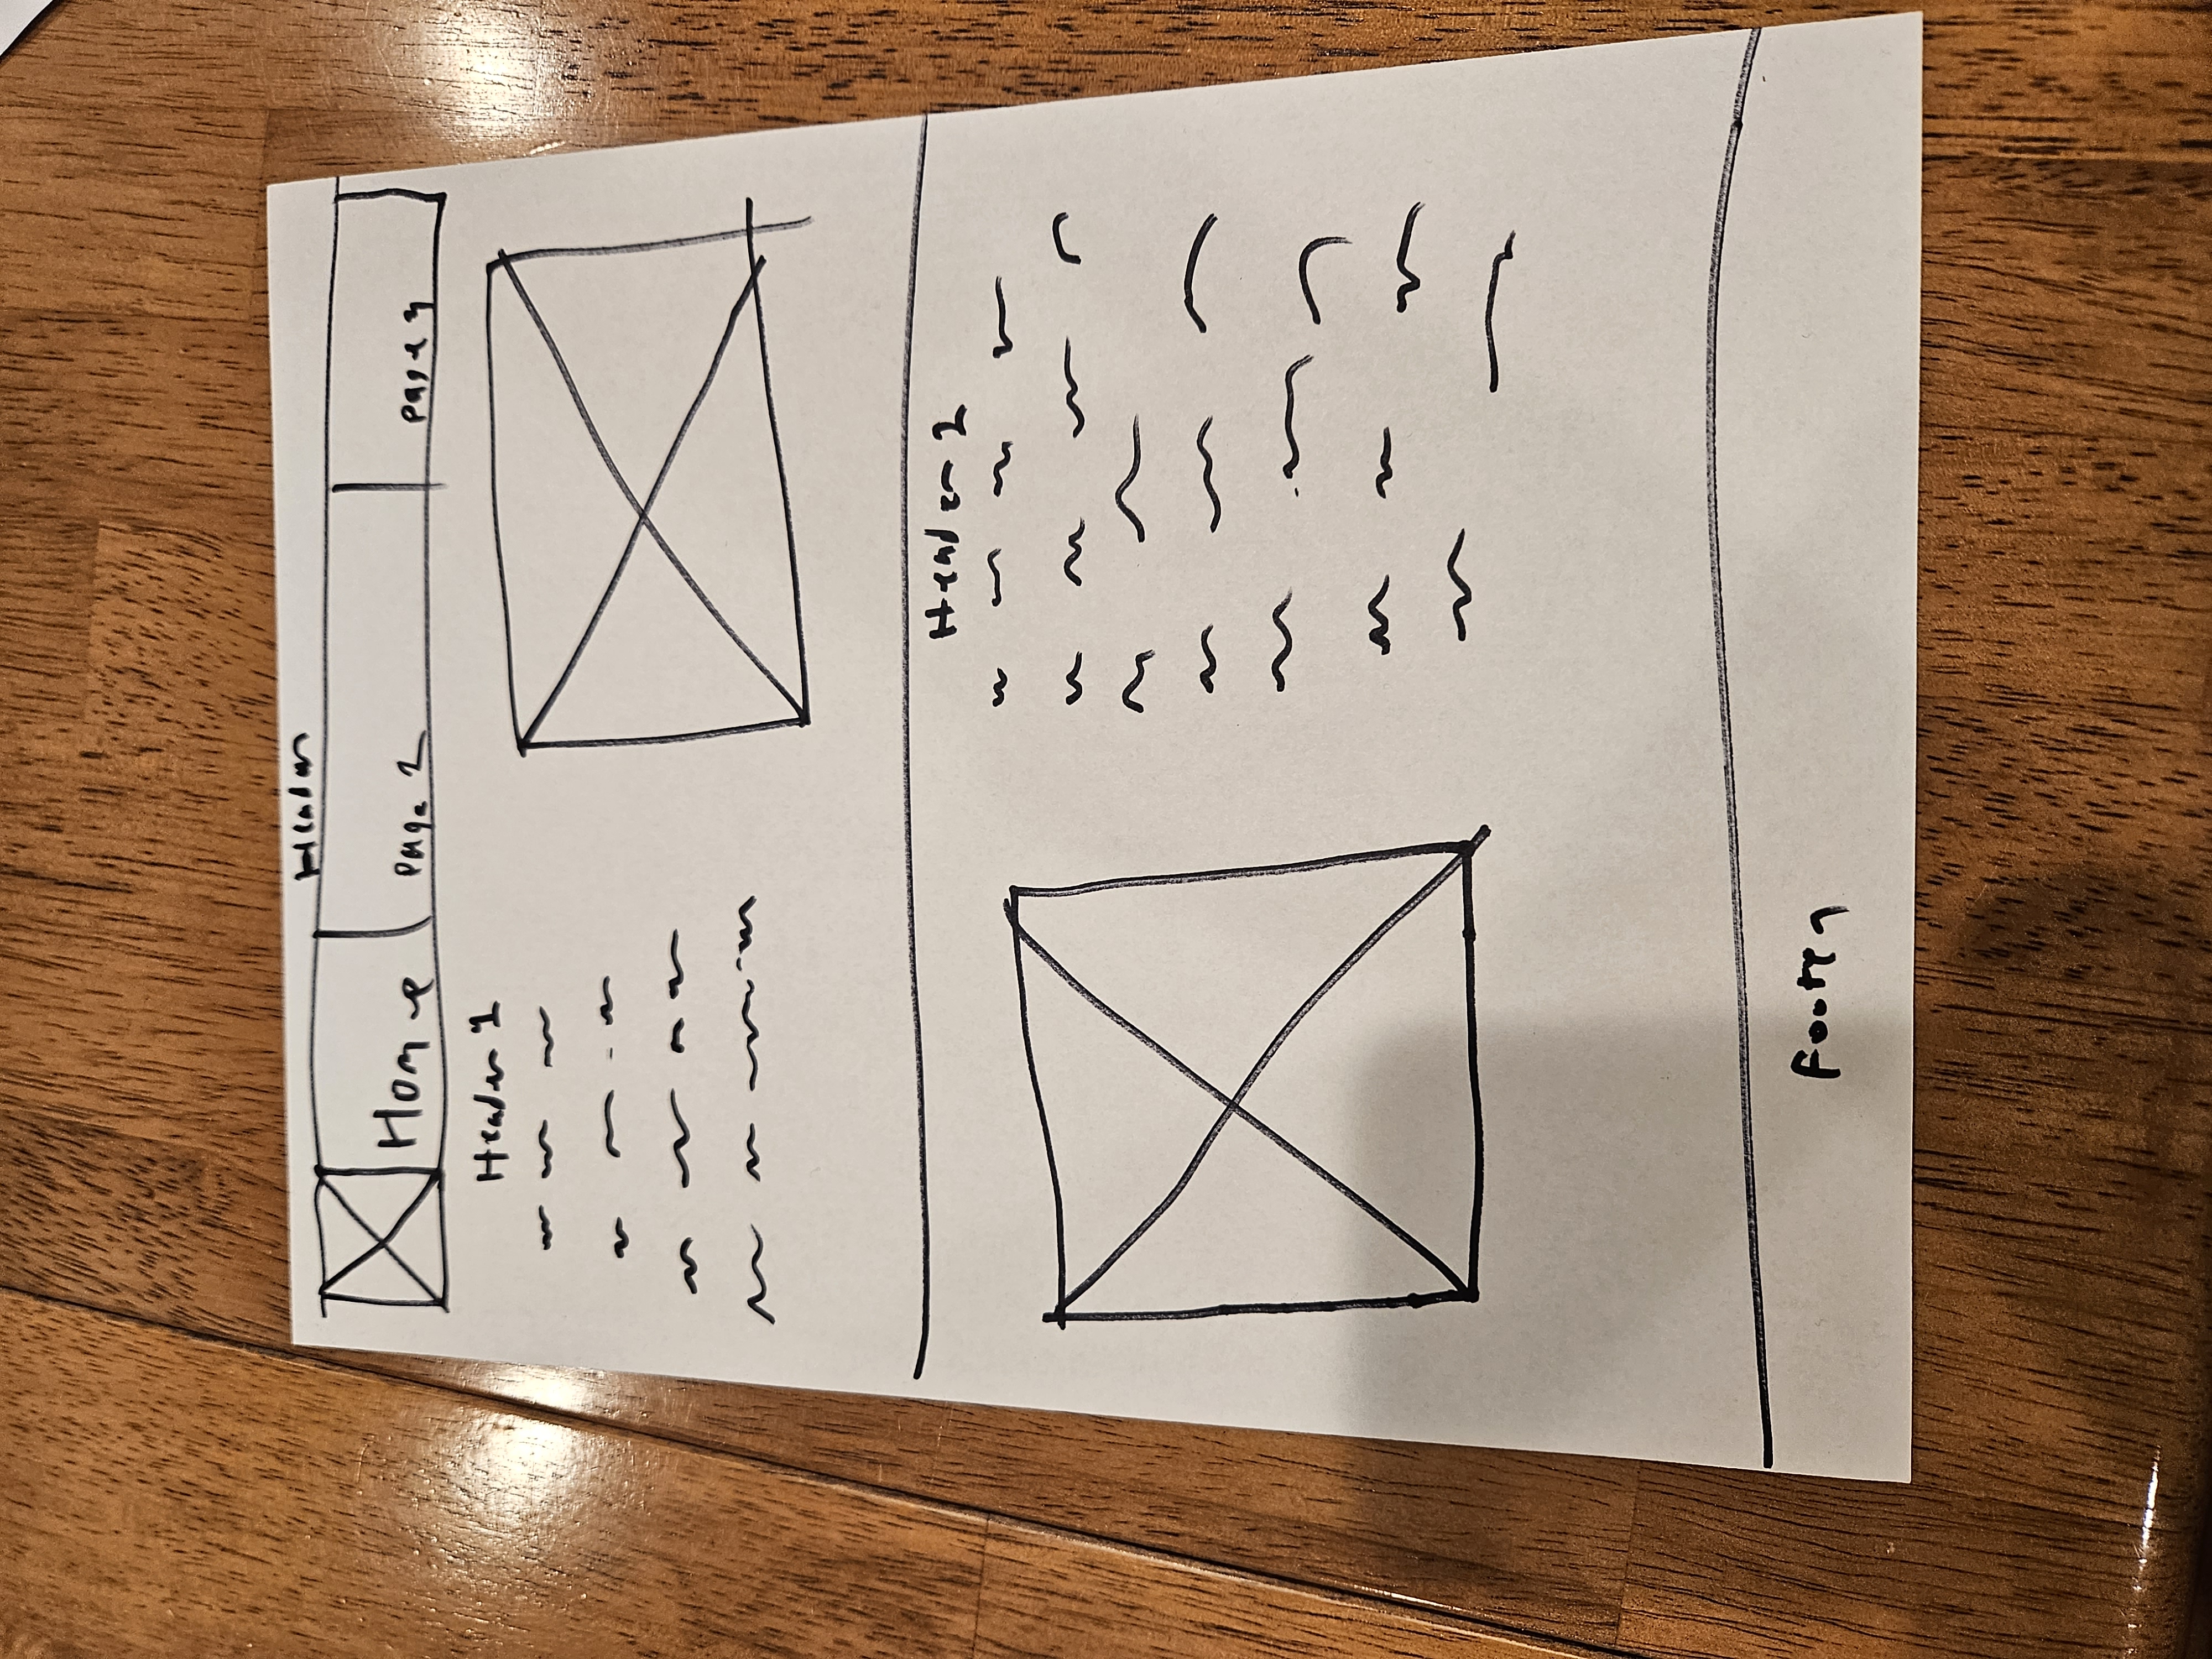 Header
Home page 2 page 3
Header 1
Header 2
Footer